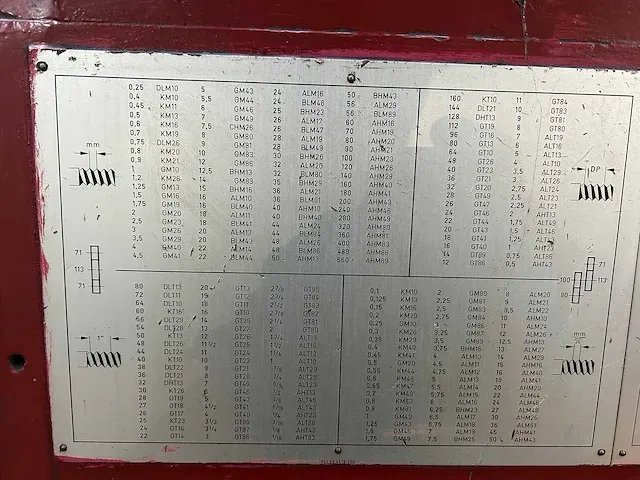 mm
0,25 DLM10 5 GM43 24 ALM16 50 BHM43
0,4 KM10 5,5 GM44 24 BLM46 56 ALM29
0,45 KM11 6 GM46 25 BHM23 56 BLM89
0,5 KM13 7 GM49 26 ALM17 60 ALM16
0,6 KM16 7,5 CHM26 28 BLM47 70 AHM19
0,7 KM19 8 GM80 28 ALM19 80 AHM20
0,75 DLM26 9 GM81 28 BLM49 90 AHM21
0,8 KM20 10 GM83 30 BHM26 100 AHM23
0,9 KM21 12 GM86 32 ALM20 120 AHM26
1 GM10 12,5 BHM13 32 BLM80 140 AHM29
1,2 KM26 14 GM89 35 BHM29 160 AHM40
1,25 GM13 15 BHM16 36 ALM21 180 AHM41
1,5 GM16 16 ALM10 36 BLM81 200 AHM43
1,75 GM19 16 BLM40 40 AHM10 240 AHM46
2 GM20 18 ALM11 40 BHM40 280 AHM49
2,5 GM23 18 BLM41 44 ALM24 320 AHM80
3 GM26 20 ALM13 44 BLM84 360 AHM81
3,5 GM29 20 BLM43 48 ALM26 400 AHM83
4 GM40 22 ALM14 48 BLM86 480 AHM86
4,5 GM41 22 BLM44 50 AHM13 560 AHM89
71
113
71
DP
160 KT10 11 GT84
144 DLT21 10 GT83
128 DHT13 9 GT81
112 GT19 8 GT80
96 GT16 7 ALT19
80 GT13 6 ALT16
64 GT10 5 ALT13
48 GT26 4 ALT10
40 GT23 3,5 ALT29
36 GT21 3 ALT26
32 GT20 2,75 ALT24
28 GT49 2,5 ALT23
26 GT47 2,25 ALT21
24 GT46 2 AHT13
22 GT44 1,75 ALT49
20 GT43 1,5 ALT46
18 GT41 1,25 ALT43
16 GT40 1 AHT23
14 GT89 0,75 ALT86
12 GT86 0,5 AHT43
71
100
113
80
1"
80 DLT13 20 GT13 2 7/8 GT85
72 DLT11 19 GT12 GT84
64 DLT10 18 GT11 GT83
60 KT16 16 GT10 GT82
56 DLT29 14 GT29 GT81
54 DLT28 13 GT27 2 GT80
50 KT13 12 GT26 ALT19
48 DLT26 11 1/2 GT25
44 DLT24 11 GT24 ALT13
40 KT10 10 GT23 ALT10
38 DLT22 9 GT21 ALT29
36 DLT21 8 GT20 ALT26
32 DHT13 7 GT49 ALT23
30 KT26 6 GT46 1 ALT20
28 GT19 5 GT43 ALT46
27 GT18 4 1/2 GT41 ALT43
26 GT17 4 GT40 ALT40
25 KT23 3 1/2 GT89 AHT23
24 GT16 3 1/4 GT87 AHT40
22 GT14 3 GT86 AHT82
mm
0,1 KM10 2 GM80 8 ALM20
0,125 KM13 2,25 GM81 9 ALM21
0,15 KM16 2,5 GM83 9,5 ALM22
0,2 KM20 2,75 GM84 10 AHM10
0,25 GM10 3 GM86 11 ALM24
0,3 KM26 3,25 GM87 12 ALM26
0,35 KM29 3,5 GM89 12,5 AHM13
0,4 KM40 3,75 BHM16 13 ALM27
0,45 KM41 4 ALM10 14 ALM29
0,5 GM20 4,5 ALM11 15 AHM16
0,55 KM44 4,75 ALM12 16 ALM40
0,6 KM46 5 ALM13 18 ALM41
0,65 KM47 5,5 ALM14 20 AHM20
0,7 KM49 5,75 ALM15 22 ALM44
0,8 KM80 6 ALM16 24 ALM46
0,9 KM81 6,25 BHM23 27 ALM48
1 GM40 6,5 ALM17 30 AHM26
1,25 GM43 6,75 ALM18 36 ALM81
1,5 GM46 7 ALM19 45 AHM41
1,75 GM49 7,5 BHM26 50 AHM43